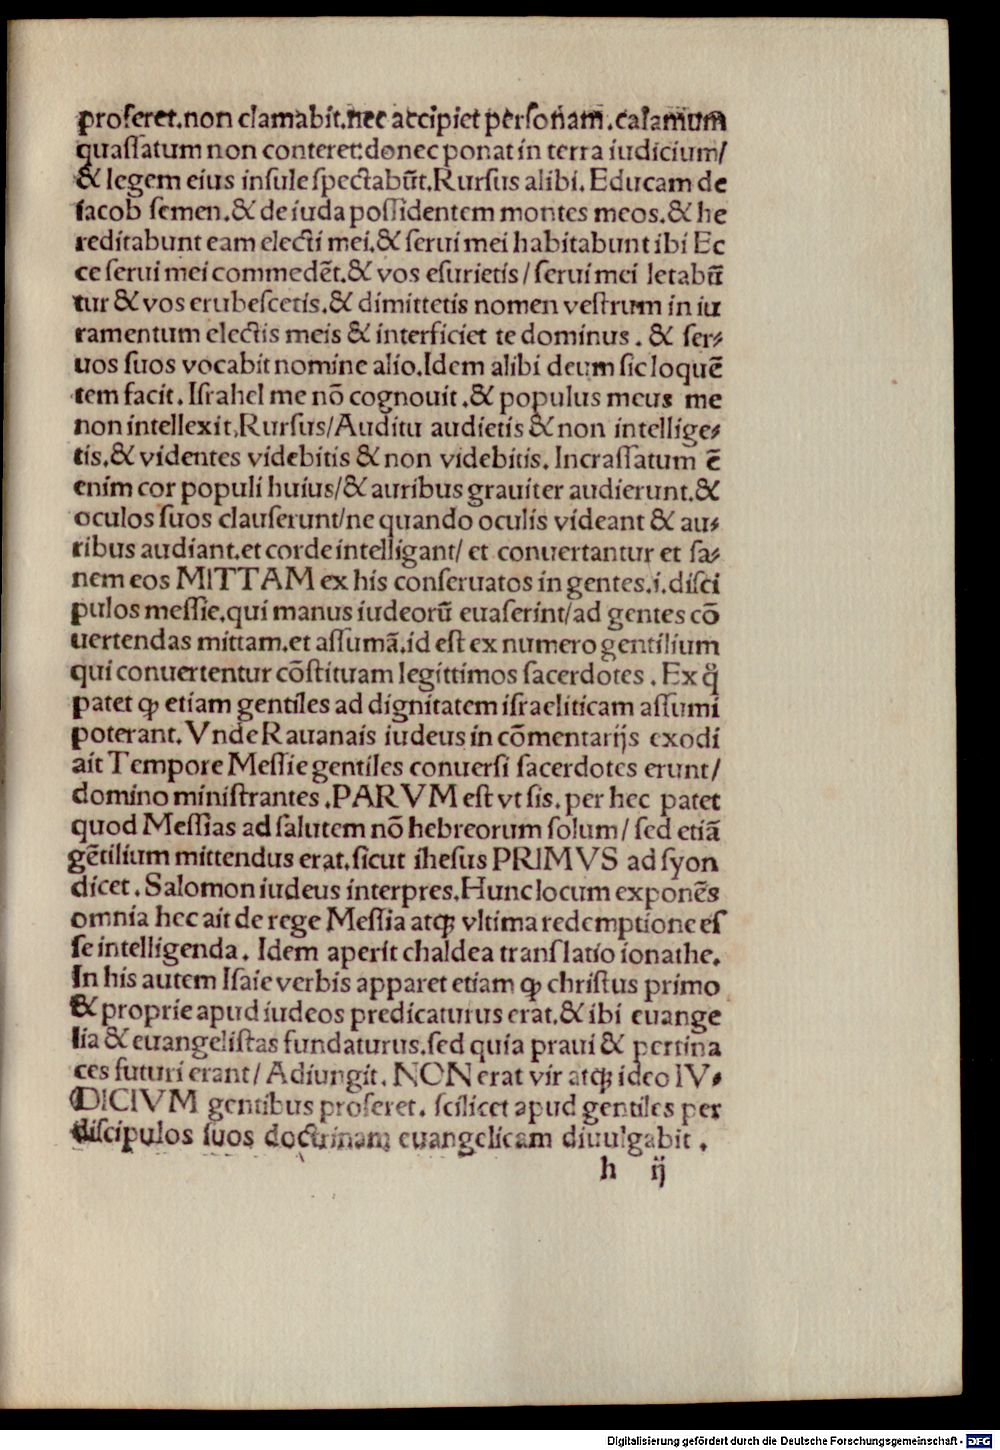 proferet.non clamabit.nec accipiet personam.calamum
quaſſatum non conteret:donec ponat in terra iudicium/
& legem eius inſule ſpectabūt.Rurſus alibi.Educam de
iacob ſemen.& de iuda poſſidentem montes meos.& he
reditabunt eam electi mei.& ſerui mei habitabunt ibi Ec
ce ſerui mei commedēt.& vos eſurietis/ſerui mei letabū
tur & vos erubeſcetis.& dimittetis nomen veſtrum in iu
ramentum electis meis & interficiet te dominus. & ſer⸗
uos ſuos vocabit nomine alio.Idem alibi deum ſic loquē
tem facit. Iſrahel me nō cognouit.& populus meus me
non intellexit.Rurſus/Auditu audietis & non intellige⸗
tis.& videntes videbitis & non videbitis. Incraſſatum ē
enim cor populi huius/& auribus grauiter audierunt.&
oculos ſuos clauſerunt/ne quando oculis videant & au⸗
ribus audiant.et corde intelligant/ et conuertantur et ſa⸗
nem eos MITTAM ex his conſeruatos in gentes.i.diſci
pulos meſſie.qui manus iudeorū euaſerint/ad gentes cō
uertendas mittam.et aſſumā.id eſt ex numero gentilium
qui conuertentur cōſtituam legittimos ſacerdotes. Ex q̊
patet ꝙ etiam gentiles ad dignitatem iſraeliticam aſſumi
poterant. Vnde Rauanais iudeus in cōmentarijs exodi
ait Tempore Meſſie gentiles conuerſi ſacerdotes erunt/
domino miniſtrantes.PARVM eſt vt ſis. per hec patet
quod Meſſias ad ſalutem nō hebreorum ſolum/ ſed etiā
gētilium mittendus erat.ſicut iheſus PRIMVS ad ſyon
dicet. Salomon iudeus interpres.Hunc locum exponēs
omnia hec ait de rege Meſſia atqꝫ vltima redemptione eſ
ſe intelligenda. Idem aperit chaldea tranſlatio ionathe.
In his autem Iſaie verbis apparet etiam ꝙ chriſtus primo
& proprie apud iudeos predicaturus erat.& ibi euange
lia & euangeliſtas fundaturus.ſed quia praui & pertina
ces futuri erant/ Adiungit. NON erat vir atqꝫ ideo IV⸗
DICIVM gentibus proferet. ſcilicet apud gentiles per
diſcipulos ſuos doctrinam euangelicam diuulgabit.
h ij
Digitalisierung gefördert durch die Deutsche Forschungsgemeinschaft - DFG